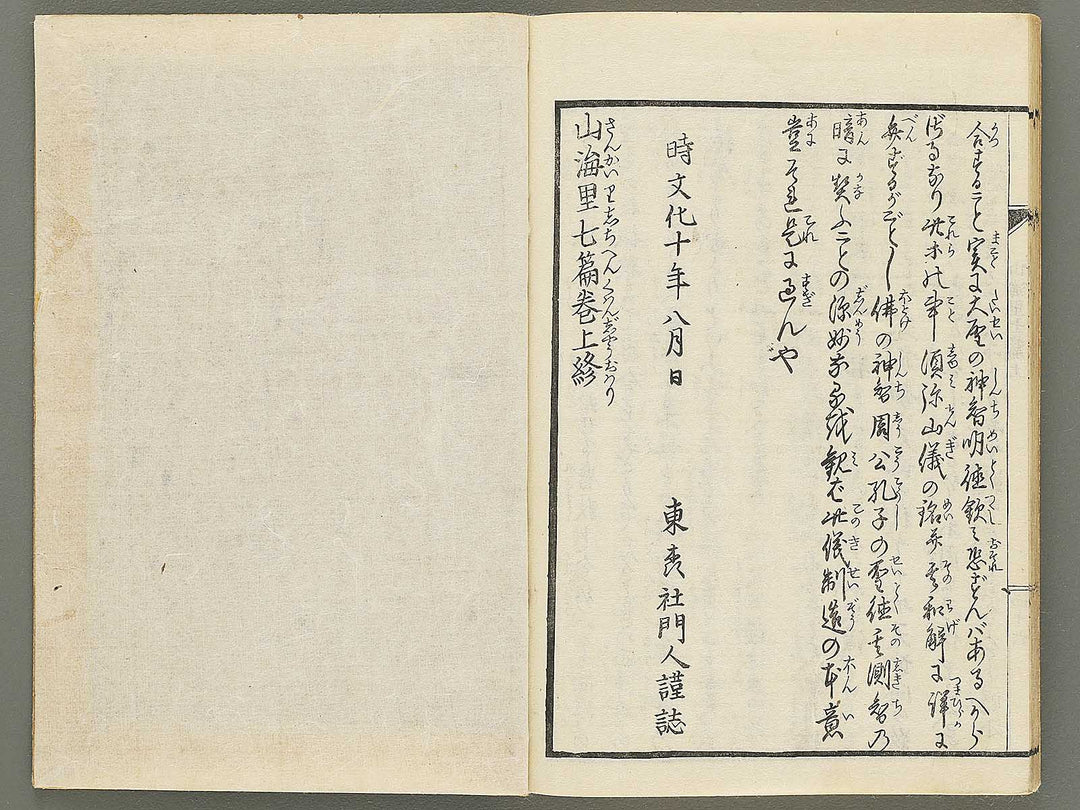 合することと実に大聖の神智明徳欽み恐ずんバあるべから
ざるなり此等の事須弥山儀の銘并其和解に詳に
弁ずるがごとし佛の神智周公孔子の聖徳其測智の
暗に契ふことの深妙なる或観を此儀制造の本意
豈それ是に過んや
時文化十年八月日
東 社門人謹誌
山海里七篇巻上終